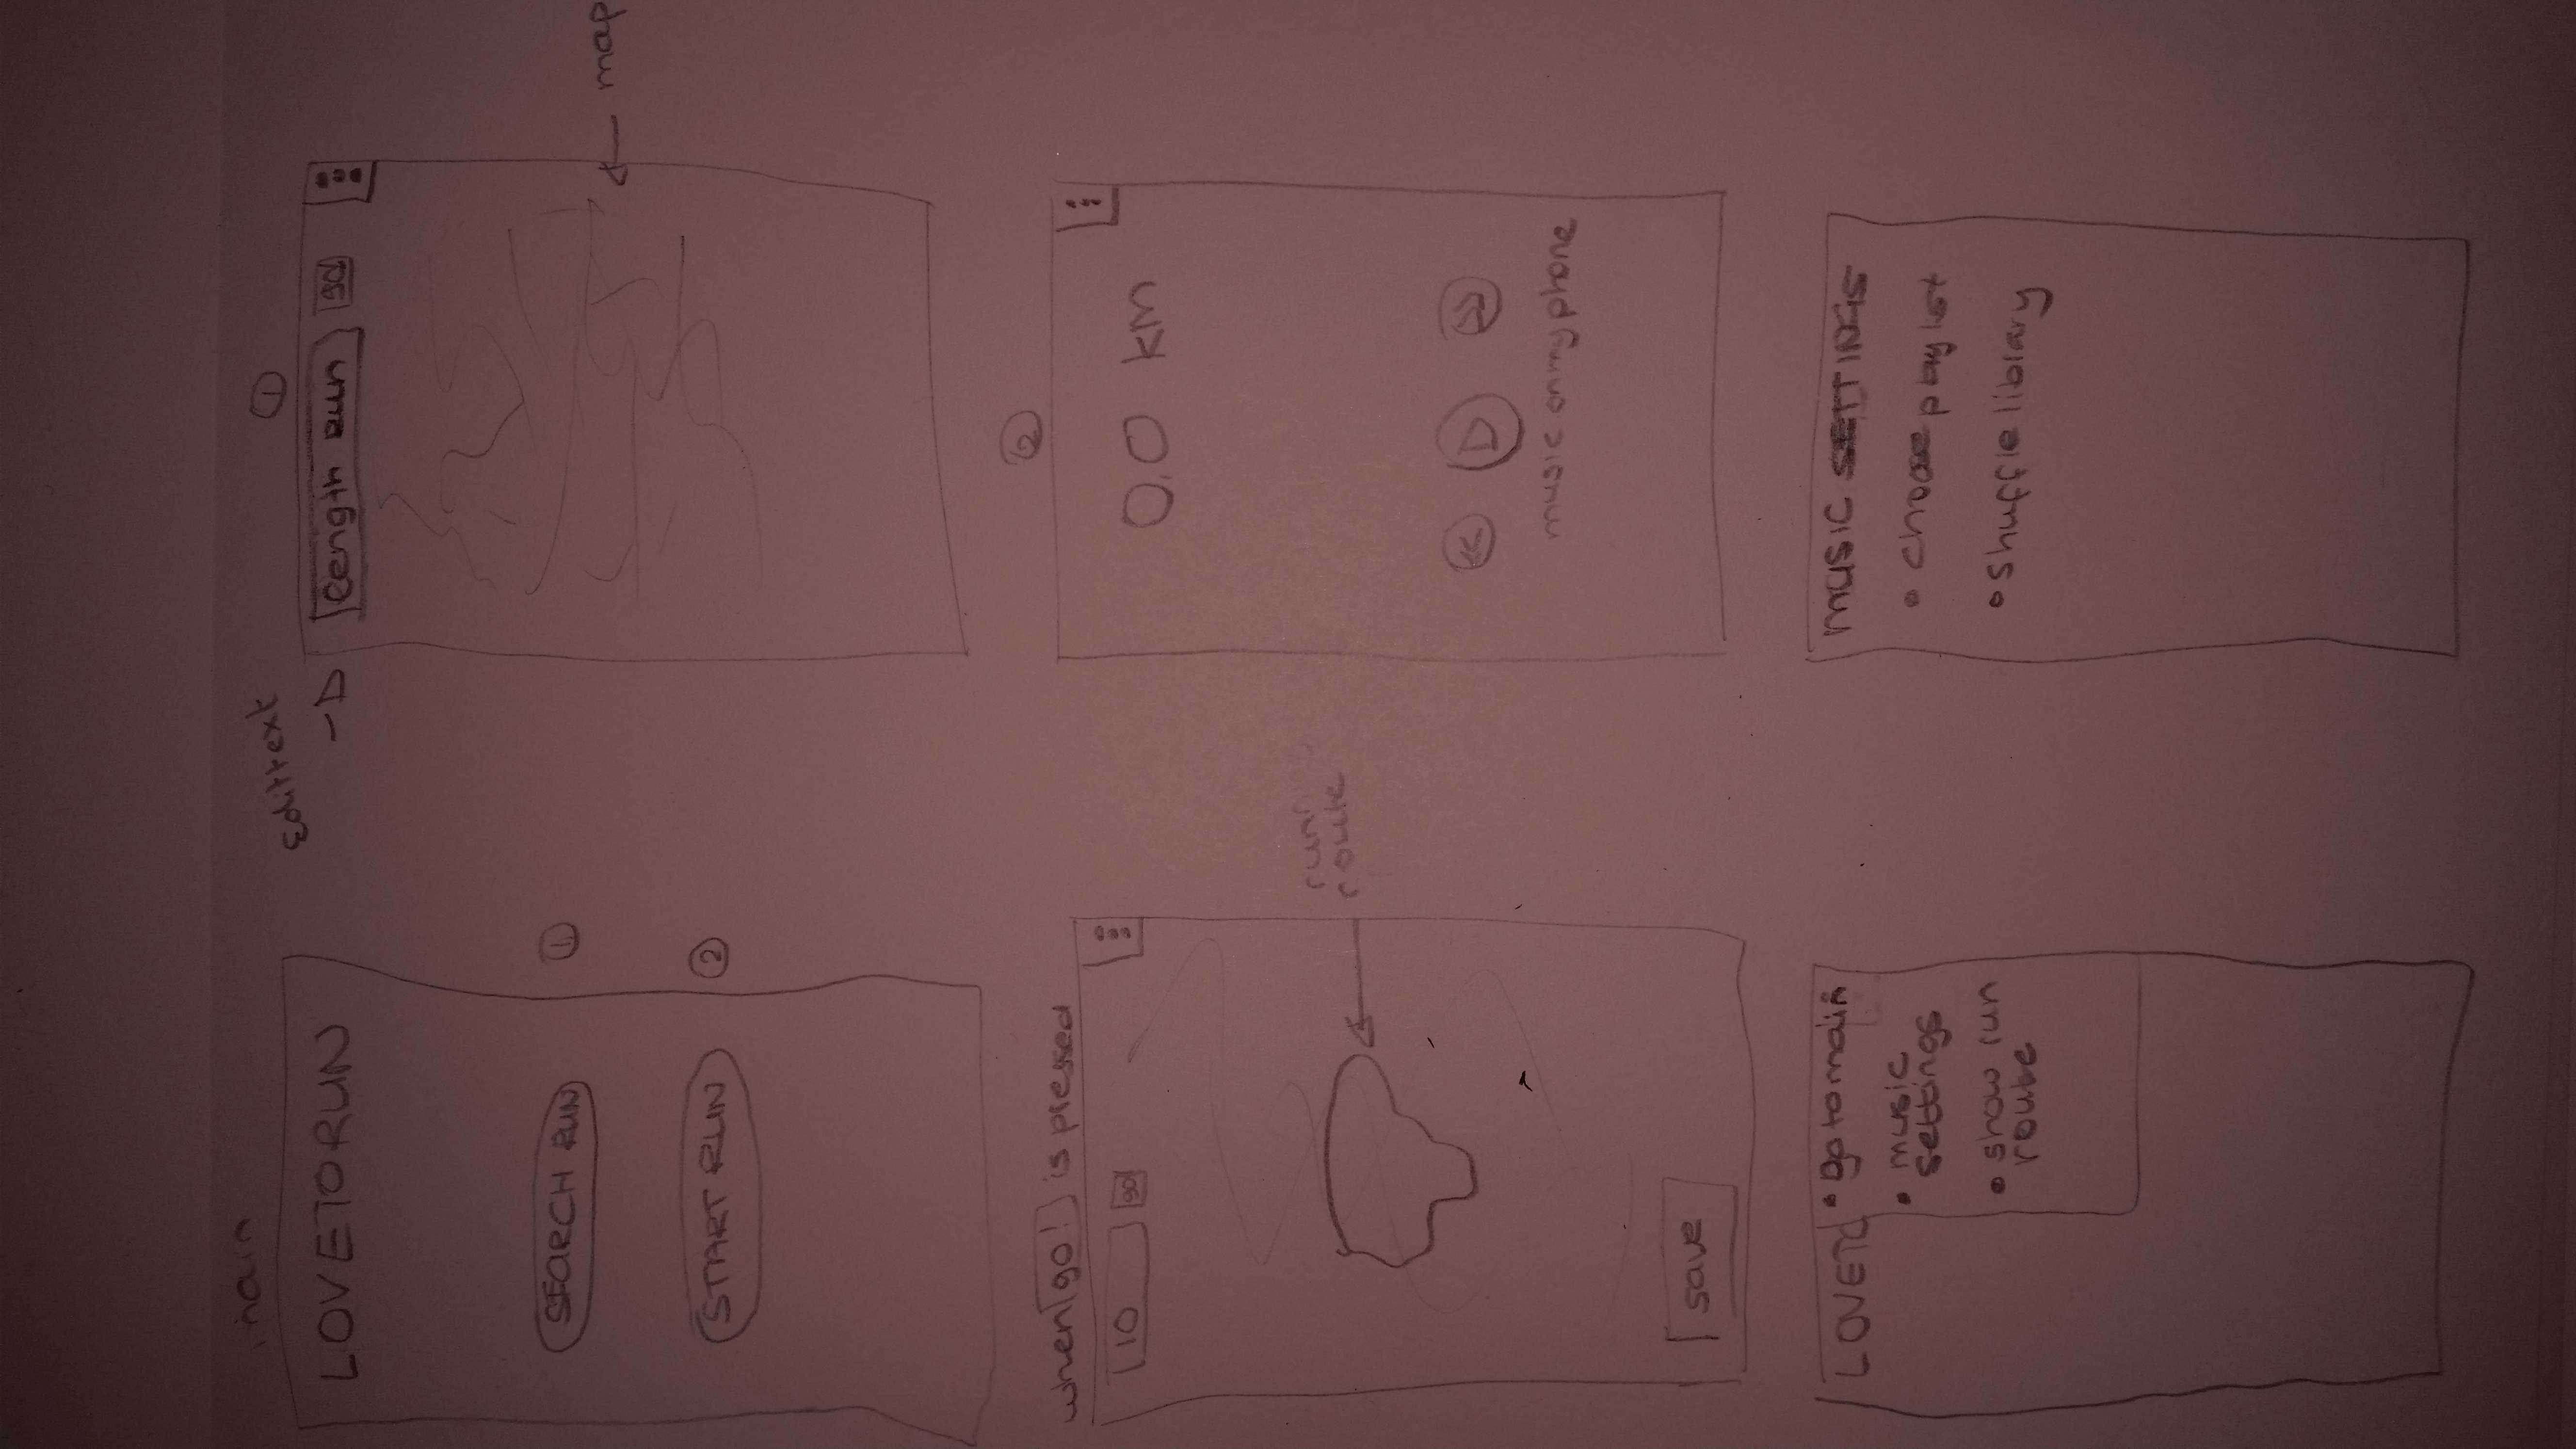 main
LOVETORUN
SEARCH RUN
①
START RUN
②
①
Edittext
length run
go!
map
when go! is pressed
10
go!
running
route
save
②
0.0 km
music on my phone
LOVETO
• go to main
• music
settings
• show run
route
MUSIC SETTINGS
• choose playlist
• shuffle library